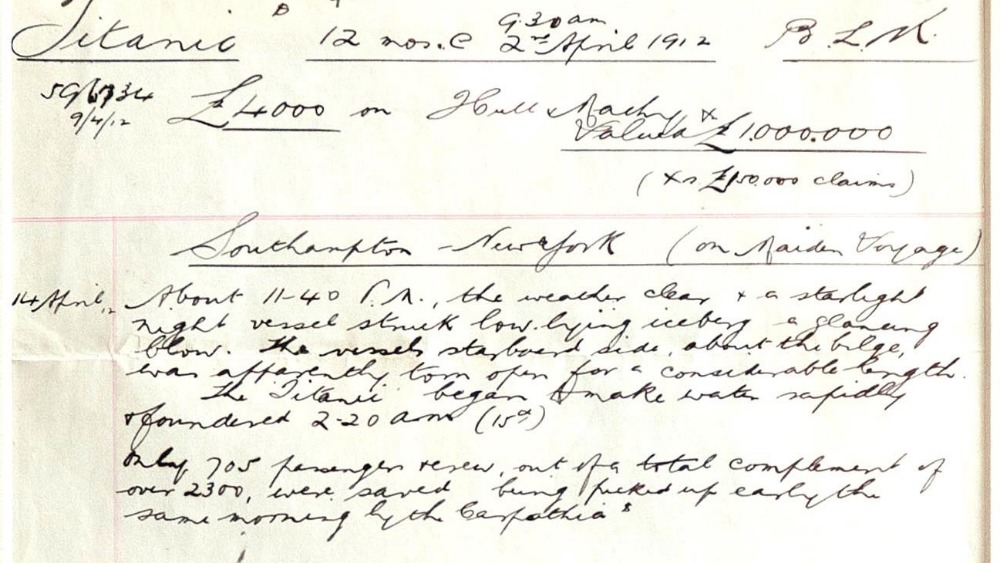 Titanic 12 mos. @ 9.30 am 2nd April 1912 B. L. M.
9/4/12 £4000 on Hull & Machy &
Valued £1.000.000
(Xs £150.000 claims)
Southampton - New York (on Maiden Voyage)
14 April 12 About 11-40 P.M., the weather clear & a starlight
night vessel struck low-lying iceberg a glancing
blow. The vessels starboard side, about the bilge,
was apparently torn open for a considerable length.
The Titanic began to make water rapidly
& foundered 2-20 am (15th)
Only 705 passengers & crew, out of a total complement of
over 2300, were saved being picked up early the
same morning by the Carpathia